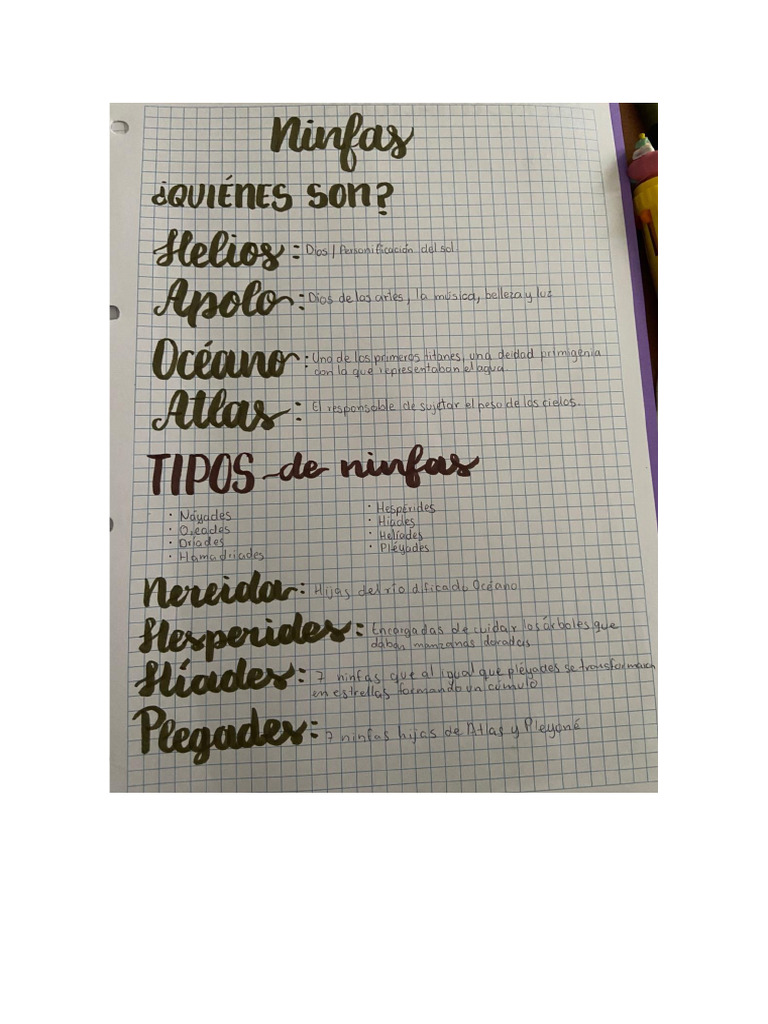 Ninfas
¿QUIÉNES SON?
Helios: Dios / Personificación del sol
Apolo: Dios de las artes, la música, belleza y luz
Océano: Uno de los primeros titanes, una deidad primigenia
con la que representaban el agua.
Atlas: El responsable de sujetar el peso de los cielos.
TIPOS de ninfas
· Náyades
· Oreades
· Dríades
· Hamadriades
· Hespérides
· Hiades
· Helíades
· Pléyades
Nereida: Hijas del río dificado Océano
Hesperides: Encargadas de cuidar los árboles que
daban manzanas doradas
Híades: 7 ninfas que al igual que pleyades se transformaron
en estrellas formando un cúmulo
Plegades: 7 ninfas hijas de Atlas y Pleyoné